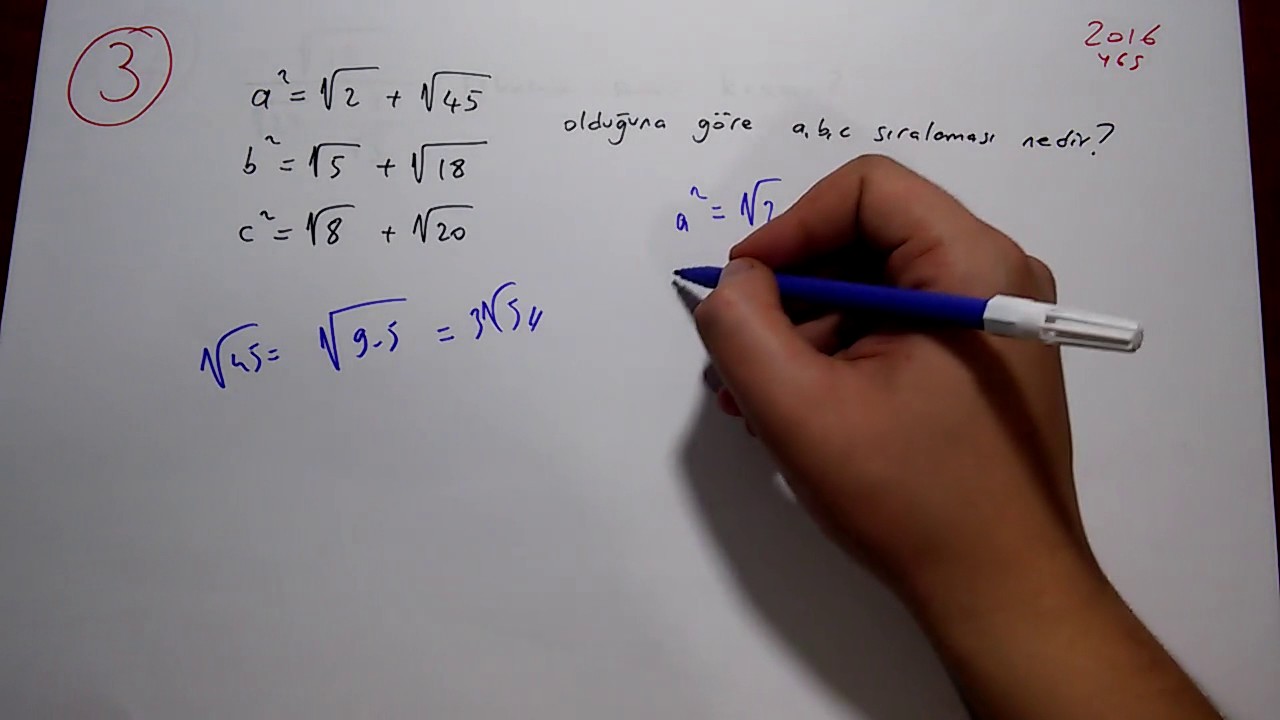 3
2016
YGS
a² = √2 + √45
b² = √5 + √18
c² = √8 + √20
olduğuna göre a,b,c sıralaması nedir?
a² = √2
√45 = √9.5 = 3√5